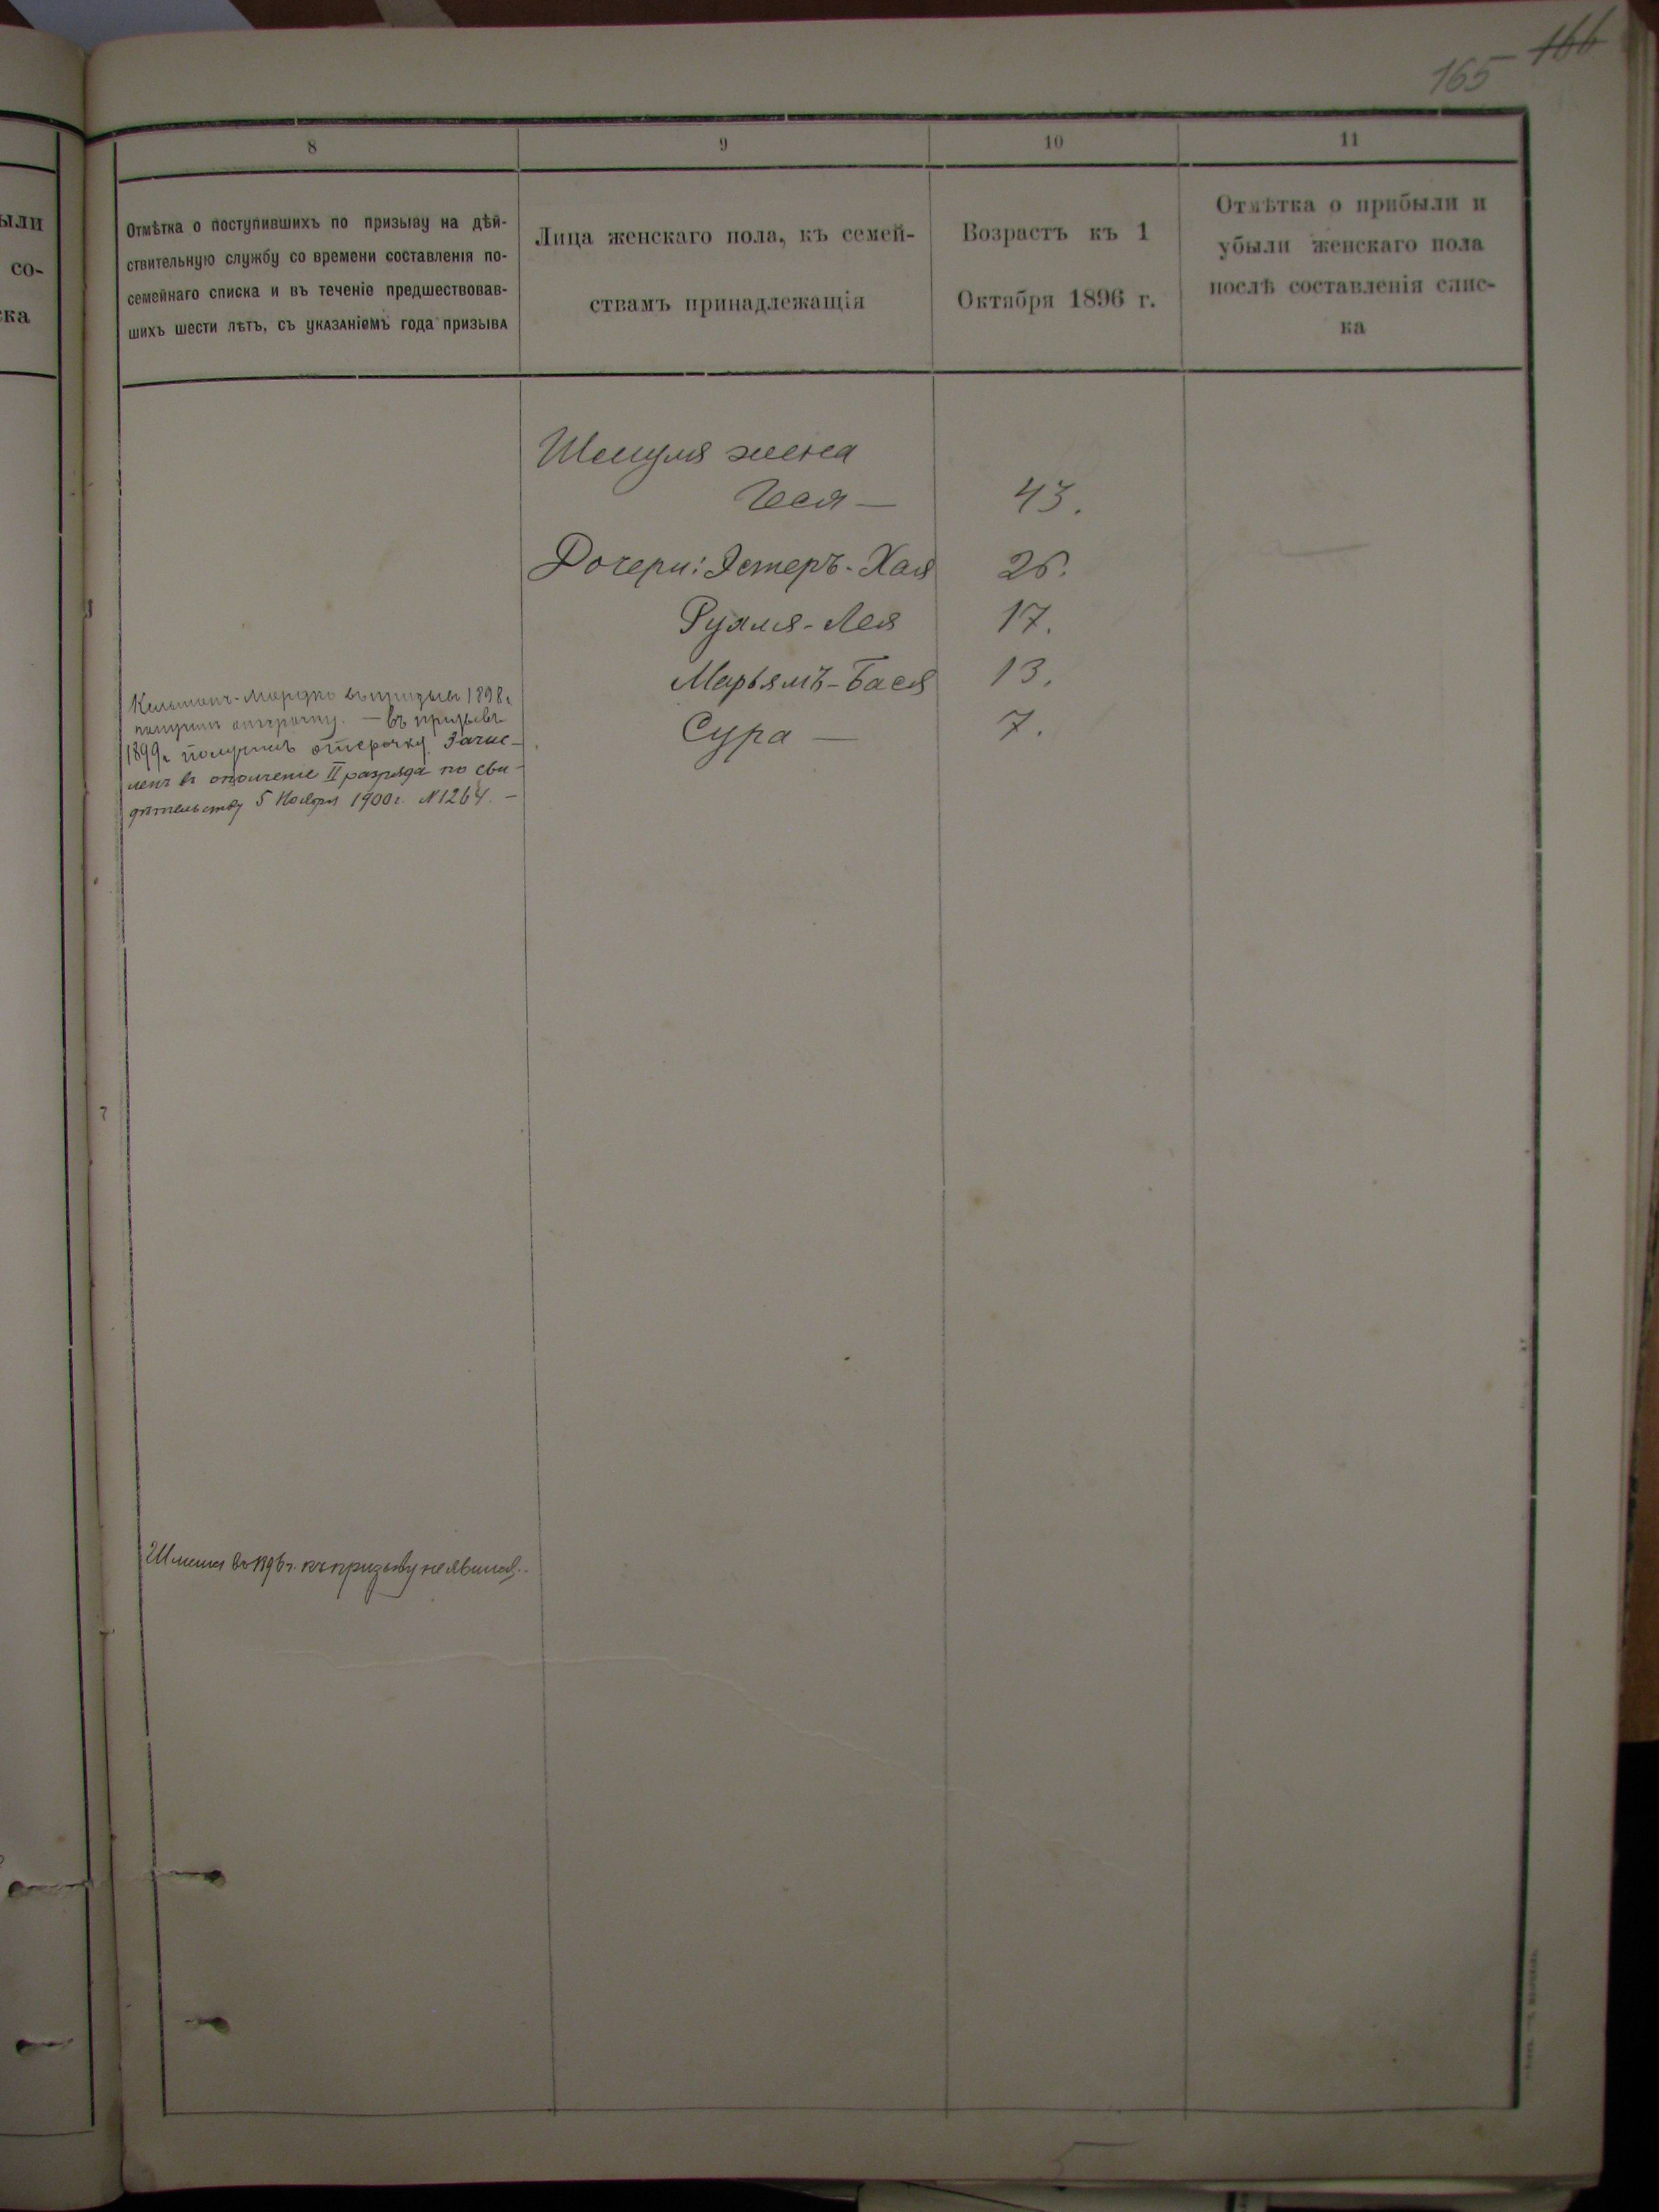 166
165
8
9
10
11
Отмѣтка о поступившихъ по призыву на дѣй-
ствительную службу со времени составленія по-
семейнаго списка и въ теченіе предшествовав-
шихъ шести лѣтъ, съ указаніемъ года призыва
Лица женскаго пола, къ семей-
ствамъ принадлежащія
Возрастъ къ 1
Октября 1896 г.
Отмѣтка о прибыли и
убыли женскаго пола
послѣ составленія спис-
ка
ыли
со-
ска
Шмуля жена
43.
Дочери: Эстеръ-Хая
Лея 17.
Марьямъ-Бася 13.
Сура — 7.
Мордко въ призывъ 1898 г.
получилъ отсрочку. — въ призывъ
1899 г. получилъ отсрочку. Зачис-
ленъ въ ополченіе II разряда по сви-
дѣтельству 5 Ноября 1900 г. № 1264. —
въ 1896 г. къ призыву не явился.